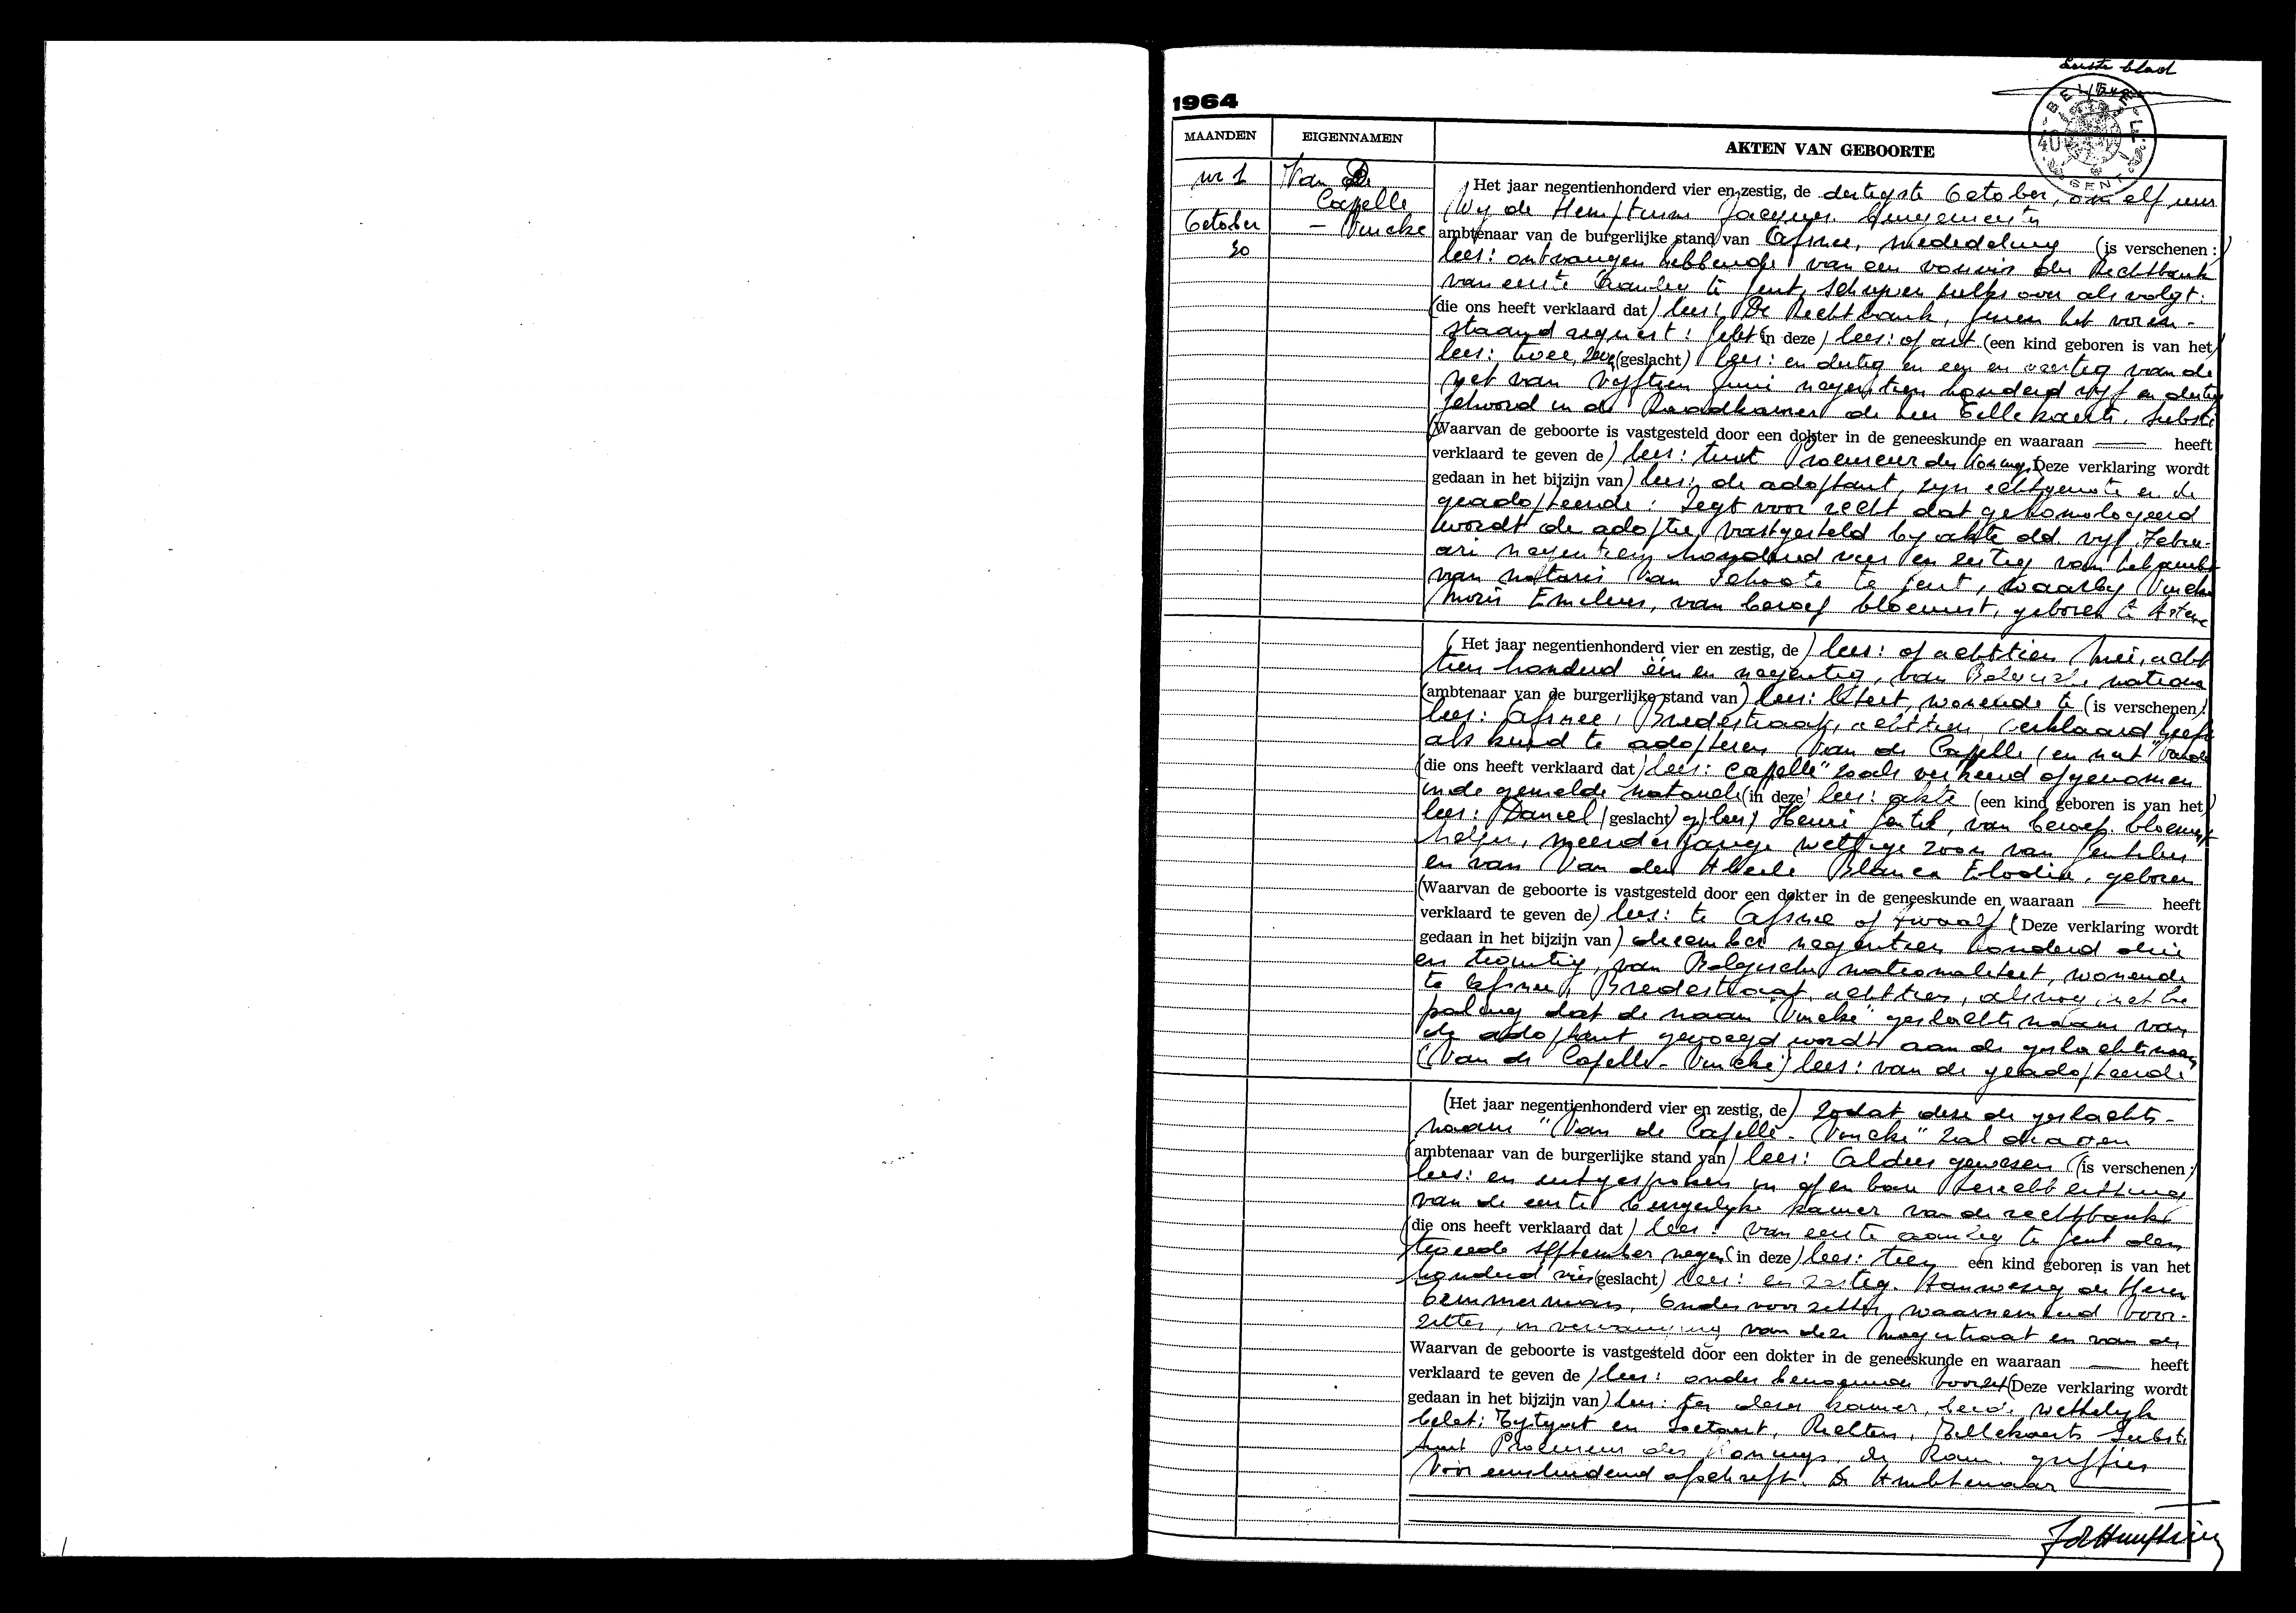 Eerste blad
1964
BELGIE
40
GENT
MAANDEN
EIGENNAMEN
AKTEN VAN GEBOORTE
nr 1
Van De
Capelle
October
- Vincke
30
Het jaar negentienhonderd vier en zestig, de dertigste October, om elf uur
Wij de Hemptinne Jacques burgemeester
ambtenaar van de burgerlijke stand van Afsnee, mededeling (is verschenen :)
lees: ontvangen hebbende van een vonnis der Rechtbank
van eerste aanleg te Gent, schrijven zulks over als volgt:
(die ons heeft verklaard dat) lees: De Rechtbank, gezien het voren-
staand request: Gelet (in deze) lees: op art (een kind geboren is van het)
lees: twee, (geslacht) lees: en dertig en een en veertig van de
wet van vijftien juni negentien honderd vijf en dertig
Gehoord in de Raadkamer de heer Tellekaerts, Substi
(Waarvan de geboorte is vastgesteld door een dokter in de geneeskunde en waaraan — heeft
verklaard te geven de) lees: tuut Procureur des Konings, Deze verklaring wordt
gedaan in het bijzijn van) lees: de adoptant, zijn echtgenote en de
geadopteerde: Zegt voor recht dat gehomologeerd
wordt de adoptie, vastgesteld bij akte dd. vijf Febru-
ari negentien honderd vier en zestig van het ambt
van notaris Van Schoote te Gent, waarbij Vincke
Moris Emelius, van beroep bloemist, geboren te Astene
(Het jaar negentienhonderd vier en zestig, de) lees: op achttien Mei, acht
tien honderd één en negentig, van Belgische nationa
(ambtenaar van de burgerlijke stand van) lees: liteit, wonende te (is verschenen)
lees: Afsnee, Bredestraat, achttien, verklaard heeft
als kind te adopteren Van de Capelle (en niet "Vande
(die ons heeft verklaard dat) lees: Capelle" zoals verkeerd opgenomen
in de gemelde notariele (in deze) lees: akte (een kind geboren is van het)
lees: Daniel (geslacht) lees) Henri Gentil, van beroep bloemist
helper, meerderjarige wettige zoon van Gentilus
en van Van den Abeele Blanca Elodia, geboren
(Waarvan de geboorte is vastgesteld door een dokter in de geneeskunde en waaraan — heeft
verklaard te geven de) lees: te Afsnee op twaalf (Deze verklaring wordt
gedaan in het bijzijn van) december negentien honderd drie
en twintig, van Belgische nationaliteit, wonende
te Afsnee, Bredestraat, achttien, alsnog, met be
paling dat de naam "Vincke" geslachtsnaam van
de adoptant gevoegd wordt aan de geslachtsnaam
(Van de Capelle - Vincke) lees: van de geadopteerde
(Het jaar negentienhonderd vier en zestig, de) zodat deze de geslachts-
naam "Van de Capelle - Vincke" zal dragen
(ambtenaar van de burgerlijke stand van) lees: Aldus gewezen (is verschenen :)
lees: en uitgesproken in openbare terechtzitting
van de eerste burgerlijke kamer van de rechtbank
(die ons heeft verklaard dat) lees: van eerste aanleg te Gent den
tweede september negen (in deze) lees: tien een kind geboren is van het
honderd vier (geslacht) lees: en zestig. Aanwezig de Heren
Temmerman, Ondervoorzitter, waarnemend voor-
zitter, in vervanging van deze magistraat en van de
Waarvan de geboorte is vastgesteld door een dokter in de geneeskunde en waaraan — heeft
verklaard te geven de) lees: ondervoorzit (Deze verklaring wordt
gedaan in het bijzijn van) lees: ter dezer kamer, beide wettelijk
belet; Eytgat en Soetaert, Rechters, Tellekaerts Substi
tuut Procureur des Konings, de griffier
Voor eensluidend afschrift. De Ambtenaar
JdHemptinne